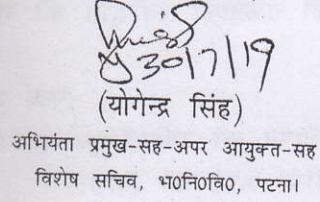 30/7/19
(योगेन्द्र सिंह)
अभियंता प्रमुख-सह-अपर आयुक्त-सह
विशेष सचिव, भ0नि0वि0, पटना।